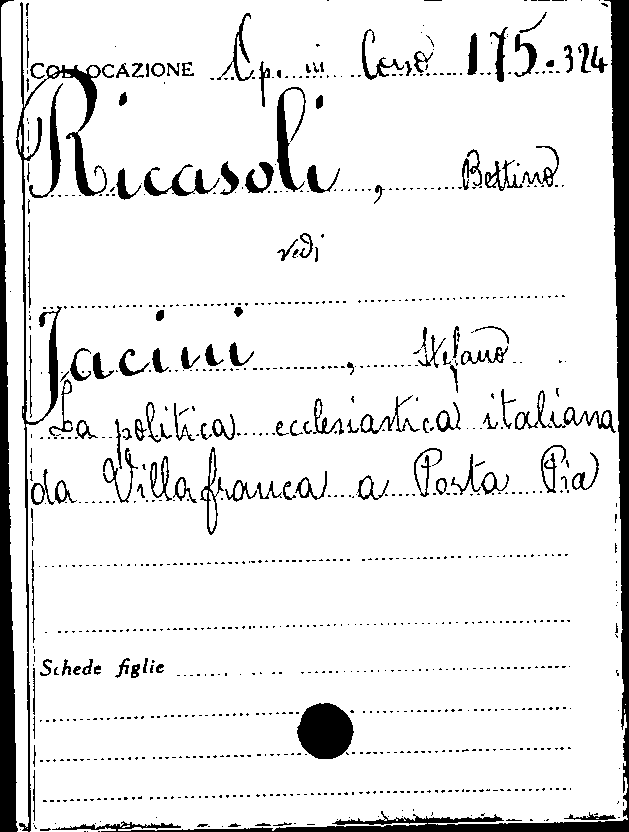 COLLOCAZIONE Op. in Corso 175.324
Ricasoli, Bettino
vedi
Jacini, Stefano
La politica ecclesiastica italiana
da Villafranca a Porta Pia
Schede figlie